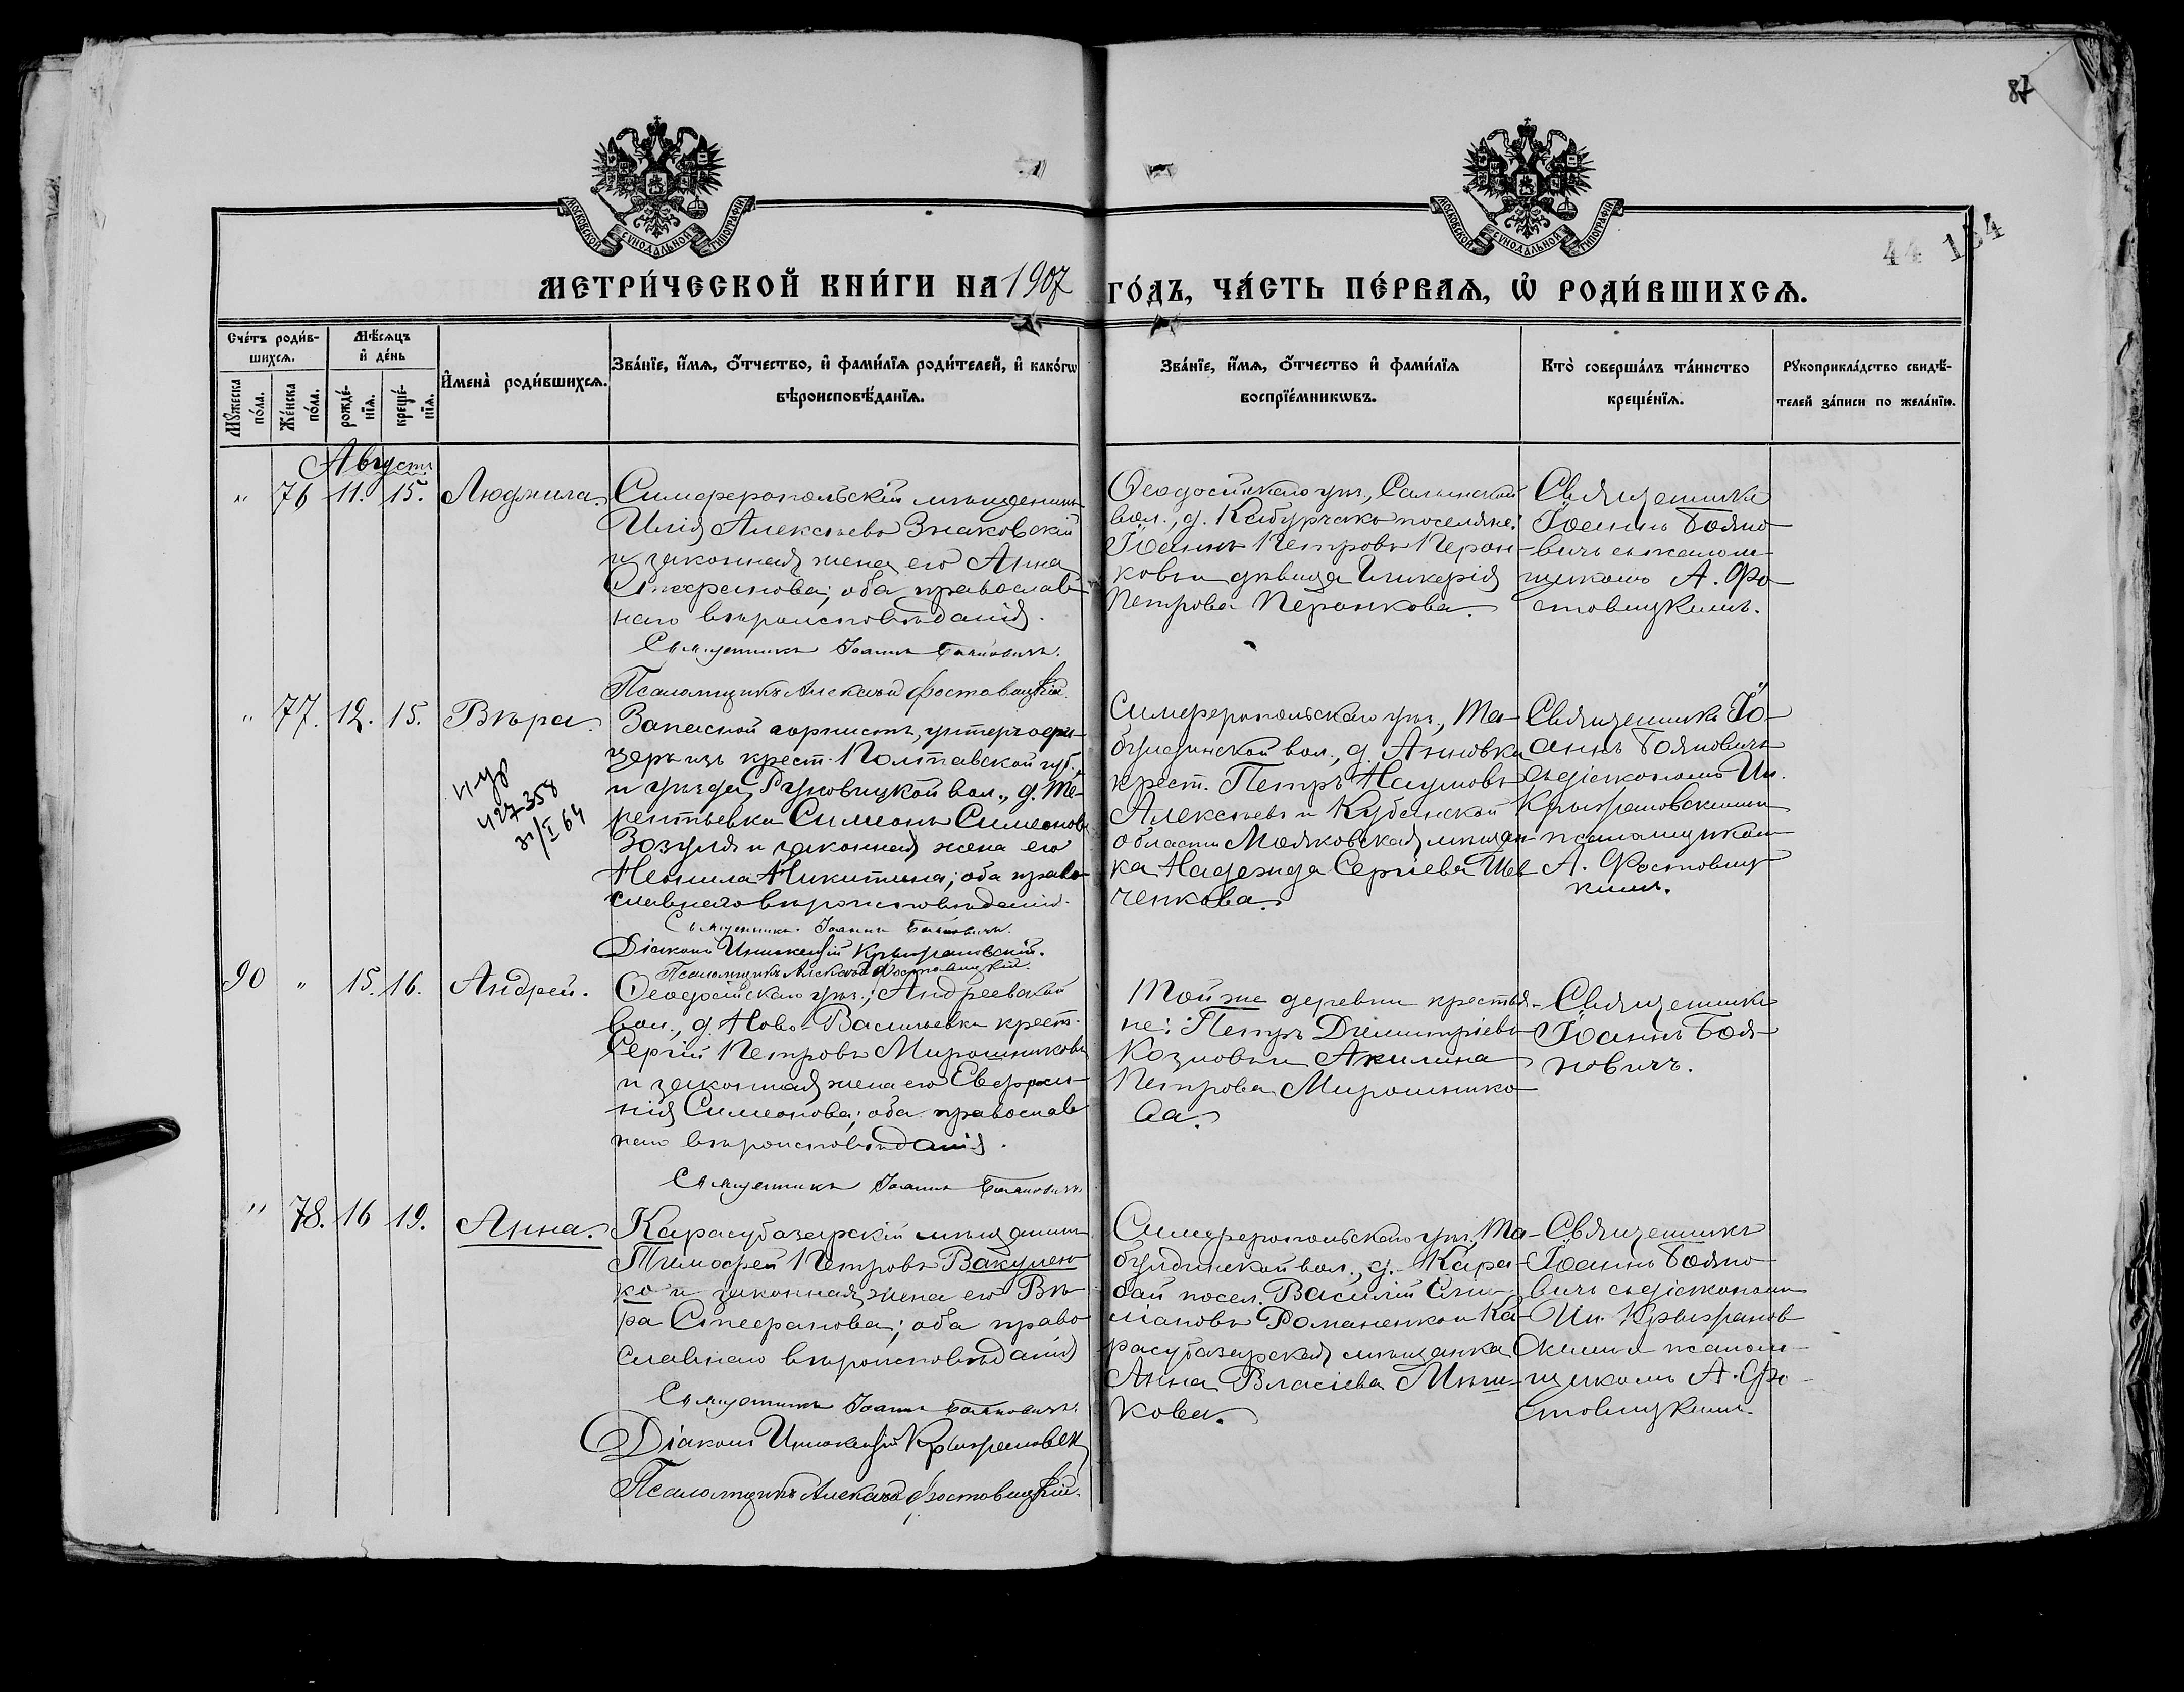 87
44 154
МОСКОВСКОЙ СѴНОДАЛЬНОЙ ТИПОГРАФІИ
МОСКОВСКОЙ СѴНОДАЛЬНОЙ ТИПОГРАФІИ
МЕТРИ́ЧЕСКОЙ КНИ́ГИ НА 1907 ГО́ДЪ, ЧА́СТЬ ПЕ́РВАѦ, Ѡ҆ РОДИ́ВШИХСѦ.
Сче́тъ роди́в-
шихсѧ.
Мꙋ́жеска по́ла.
Же́нска по́ла.
Мѣ́сѧцъ
и҆ де́нь
рожде́-
нїѧ.
креще́-
нїѧ.
И҆мена̀ роди́вшихсѧ.
Зва́нїе, и҆́мѧ, ѻ҆́тчество, и҆ фами́лїѧ роди́телей, и҆ како́гѡ
вѣроисповѣ́данїѧ.
Зва́нїе, и҆́мѧ, ѻ҆́тчество и҆ фами́лїѧ
воспрїе́мникѡвъ.
Кто̀ соверша́лъ та́инство
креще́нїѧ.
Рꙋкоприкла́дство свидѣ́-
телей за́писи по жела́нїю.
Августъ
" 76 11. 15. Людмила.
Симферопольскій мѣщанинъ
Илія Алексѣевъ Знаковскій
и законная жена его Анна
Стефанова; оба православ-
наго вѣроисповѣданія.
Священникъ Іоаннъ Бояновичъ.
Псаломщикъ Алексѣй Фостовицкій.
Ѳеодосійскаго уѣз., Салынской
вол., д. Кабурчакъ поселяне:
Іоаннъ Петровъ Перон-
ковъ и дѣвица Гликерія
Петрова Перонкова.
Священникъ
Іоаннъ Бояно-
вичъ съ псалом-
щикомъ А. Фо-
стовицкимъ.
" 77. 12. 15. Вѣра.
н-ур
427358
31/I 64
Запасной горнистъ, унтеръ офи-
церъ изъ крест. Полтавской губ.,
и уѣзда, Руновщкой вол., д. Те-
рентьевки Симеонъ Симеоновъ
Зозуля и законная жена его
Неонила Никитина; оба право-
славнаго вѣроисповѣданія.
Священникъ Іоаннъ Бояновичъ.
Діаконъ Иннокентій Крыжановскій.
Псаломщикъ Алексѣй Фостовицкій.
Симферопольскаго уѣз., Та-
булдинской вол., д. Анновка
крест. Петръ Наумовъ
Алексѣевъ и Кубанской
области мѣщан-
ка Надежда Сергіева Шев-
ченкова.
Священникъ Іо-
аннъ Бояновичъ
съ діакономъ Ин.
Крыжановскимъ и
псаломщикомъ
А. Фостовиц-
кимъ.
90 " 15. 16. Андрей.
Ѳеодосійскаго уѣз., Андреевской
вол., д. Ново-Васильевка крест.
Сергій Петровъ Мирошниковъ
и законная жена его Евфроси-
нія Симеонова; оба православ-
наго вѣроисповѣданія.
Священникъ Іоаннъ Бояновичъ
Той же деревни крестья-
не: Петръ Димитріевъ
Козловъ и Акилина
Петрова Мирошнико-
ва.
Священникъ
Іоаннъ Боя-
новичъ.
" 78. 16 19. Анна.
Карасубазарскій мѣщанинъ
Тимофей Петровъ Вакулен-
ко и законная жена его Вѣ-
ра Стефанова; оба право-
славнаго вѣроисповѣданія
Священникъ Іоаннъ Бояновичъ.
Діаконъ Иннокентій Крыжановск
Псаломщикъ Алексѣй Фостовицкій.
Симферопольскаго уѣз., Та-
булдинской вол., д. Кара-
бай посел. Василій Еми-
ліановъ Романенко и Ка-
расубазарская мѣщанка
Анна Власіева Мыш-
кова.
Священникъ
Іоаннъ Бояно-
вичъ съ діакономъ
Ин. Крыжанов-
скимъ и псалом-
щикомъ А. Фо-
стовицкимъ.